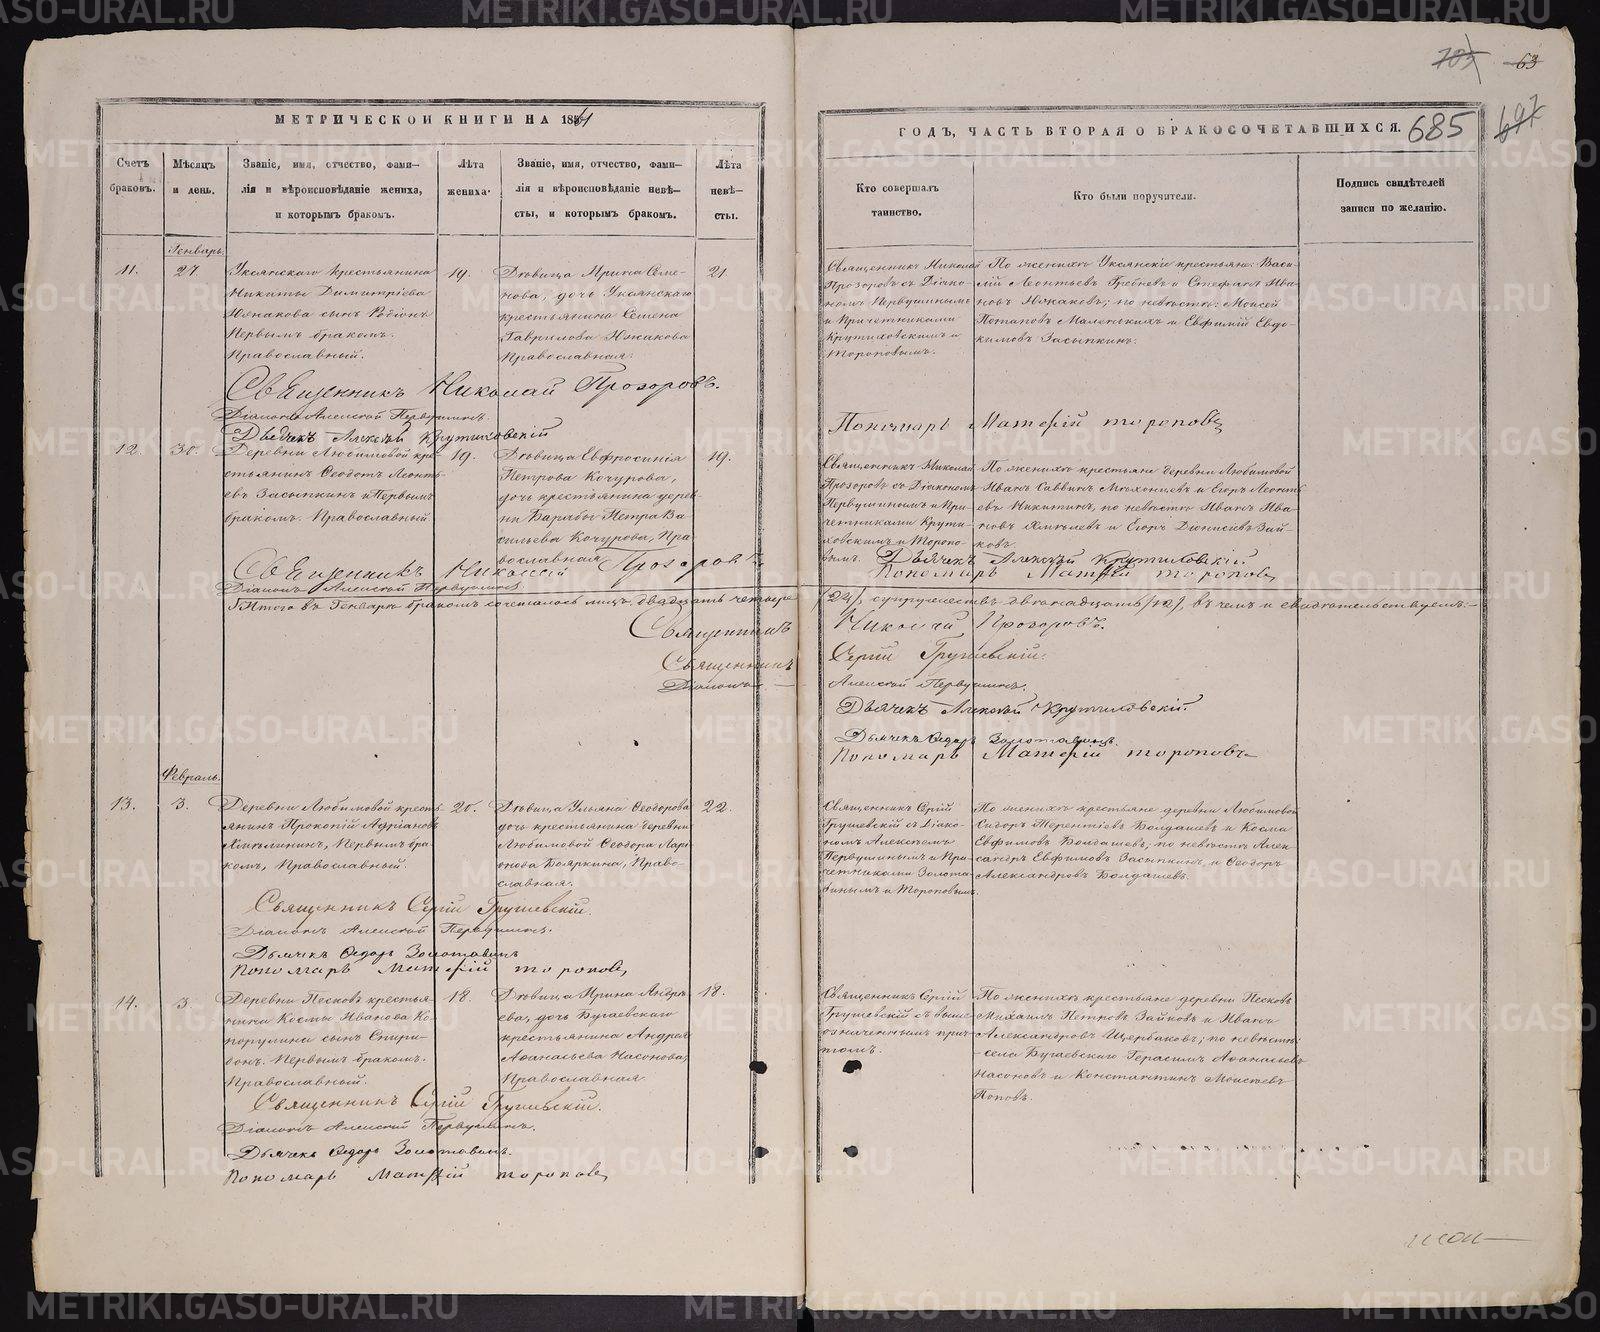 703 63
МЕТРИЧЕСКОЙ КНИГИ НА 1861
ГОДЪ, ЧАСТЬ ВТОРАЯ О БРАКОСОЧЕТАВШИХСЯ. 685 697
Счетъ браковъ.
Мѣсяцъ и день.
Званіе, имя, отчество, фами-
лія и вѣроисповѣданіе жениха,
и которымъ бракомъ.
Лѣта
жениха.
Званіе, имя, отчество, фами-
лія и вѣроисповѣданіе невѣ-
сты, и которымъ бракомъ.
Лѣта
невѣ-
сты.
Кто совершалъ
таинство.
Кто были поручители.
Подпись свидѣтелей
записи по желанію.
Генварь.
11.
27.
Уксянскаго крестьянина
Никиты Димитріева
Южакова сынъ Родіонъ
Первымъ бракомъ.
Православный.
19.
Дѣвица Ирина Семе-
нова, дочь Уксянскаго
крестьянина Семена
Гаврилова Южакова
Православная.
21.
Священникъ Николай
Прозоровъ съ Діако-
номъ Первушинымъ
и Причетниками
Крутиховскимъ и
Тороповымъ.
По женихѣ Уксянскіе крестьяне: Васи-
лій Леонтьевъ Гребневъ и Стефанъ Ива-
новъ Южаковъ; по невѣстѣ: Моисей
Потаповъ Маленькихъ и Евфимій Евдо-
кимовъ Засыпкинъ.
Священникъ Николай Прозоровъ.
Діаконъ Алексѣй Первушинъ.
Дьячекъ Алексѣй Крутиховскій
Пономарь Матѳій Тороповъ
12.
30.
Деревни Любимовой кре-
стьянинъ Ѳеодотъ Леонть-
евъ Засыпкинъ Первымъ
бракомъ. Православный
19.
Дѣвица Евфросинія
Петрова Кочурова,
дочь крестьянина дерев-
ни Барабы Петра Ва
сильева Кочурова, Пра
вославная
19.
Священникъ Николай
Прозоровъ съ Діакономъ
Первушинымъ и При-
четниками Крути-
ховскимъ и Торопо-
вымъ.
По женихѣ крестьяне деревни Любимовой
Иванъ Саввинъ и Егоръ Леонть
евъ Никитинъ, по невѣстѣ Иванъ Ива-
новъ Хмѣлевъ и Егоръ Діонисіевъ Зай-
ковъ.
Священникъ Николай Прозоровъ
Діаконъ Алексѣй Первушинъ
Дьячекъ Алексѣй Крутиховскій.
Пономарь Матѳій Тороповъ
Итого въ Генварѣ бракомъ сочеталось лицъ двадцать четыре
(24), супружествъ двенадцать (12), въ чемъ и свидѣтельствуемъ:
Священникъ Николай Прозоровъ.
Священникъ Сергій Грушевскій.
Діаконъ Алексѣй Первушинъ.
Дьячекъ Алексѣй Крутиховскій.
Дьячекъ Ѳедоръ Золотавинъ.
Пономарь Матѳій Тороповъ
Февраль.
13.
3.
Деревни Любимовой кресть-
янинъ Прокопій Адріановъ
Хмѣлининъ, Первымъ бра-
комъ, Православный.
20.
Дѣвица Ульяна Ѳеодорова
дочь крестьянина деревни
Любимовой Ѳеодора Лари-
онова Бояркина, Право-
славная.
22.
Священникъ Сергій
Грушевскій съ Діако-
номъ Алексѣемъ
Первушинымъ и При-
четниками Золота-
винымъ и Тороповымъ.
По женихѣ крестьяне деревни Любимовой
Сидоръ Терентіевъ Болдашевъ и Косма
Евфимовъ Болдашевъ; по невѣстѣ Алек-
сандръ Евфимовъ Засыпкинъ и Ѳеодоръ
Александровъ Болдашевъ.
Священникъ Сергій Грушевскій.
Діаконъ Алексѣй Первушинъ.
Дьячекъ Ѳедоръ Золотавинъ
Пономарь Матѳій Тороповъ
14.
3.
Деревни Песковъ крестья-
нина Космы Иванова Ко-
порулина сынъ Спири-
донъ. Первымъ бракомъ.
Православный.
18.
Дѣвица Ирина Андре-
ева, дочь Бугаевскаго
крестьянина Андрея
Аѳанасьева Насонова,
Православная
18.
Священникъ Сергій
Грушевскій съ выше-
означеннымъ прич-
томъ.
По женихѣ крестьяне деревни Песковъ
Михаилъ Петровъ Зайковъ и Иванъ
Александровъ Щербаковъ; по невѣстѣ:
села Бугаевскаго Герасимъ Аѳанасьевъ
Насоновъ и Константинъ Моисѣевъ
Поповъ.
Священникъ Сергій Грушевскій.
Діаконъ Алексѣй Первушинъ.
Дьячекъ Ѳедоръ Золотавинъ.
Пономарь Матѳій Тороповъ
METRIKI.GASO-URAL.RU